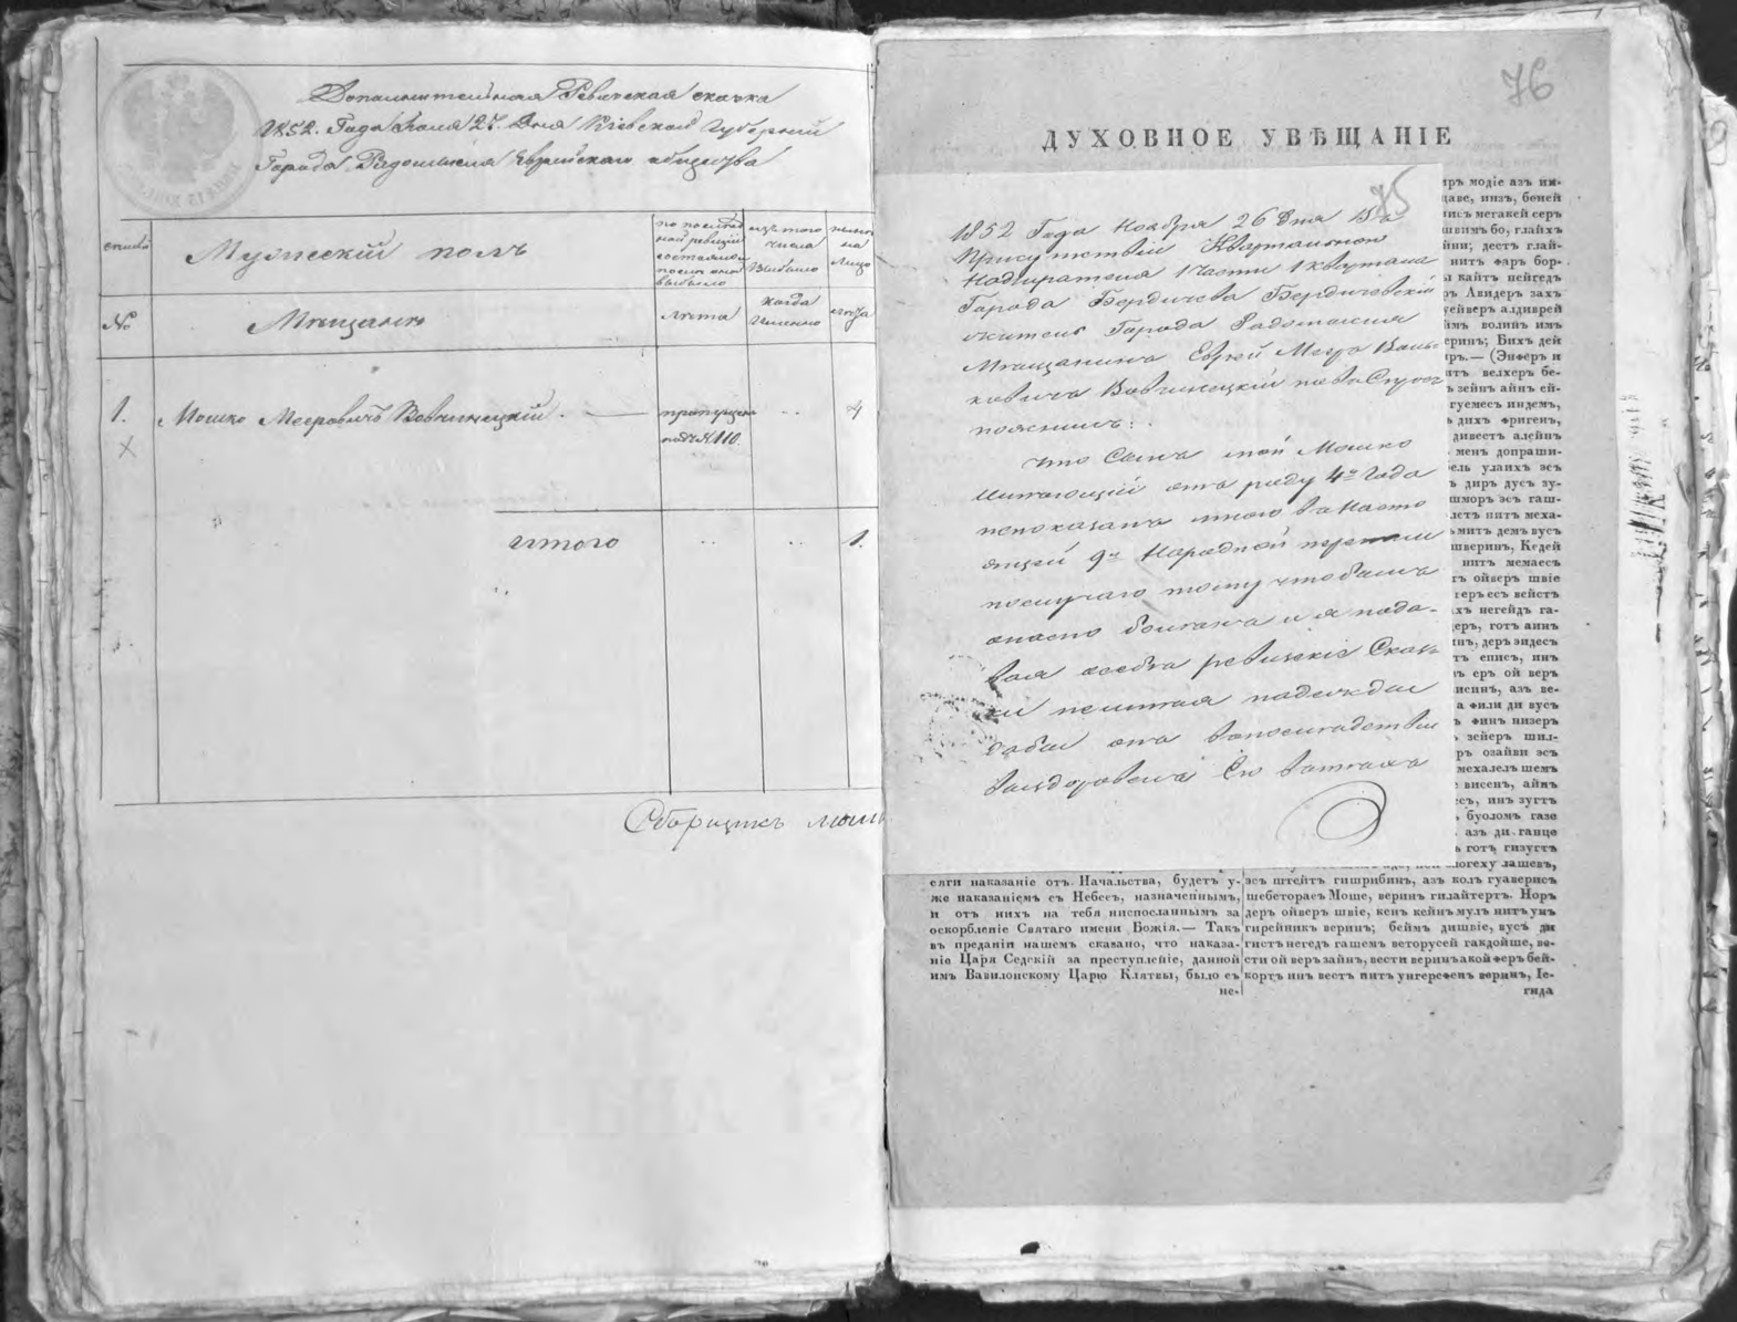 Дополнительная Ревизская сказка
1852. Года Июня 27. Дня Кіевской Губерніи
Города Радомысля Еврейскаго общества
Мужескій полъ
по послѣд
ней ревизіи
состояло и
после она
выбыло
изъ того
числа
Выбыло
ныне
на
лицо
№
Мѣщане
лѣта
когда
Именно
лѣта
1.
Мошко Мееровичъ Вовчинецкій.
пропущенъ
подъ № 110.
4
итого
1.
Сборщикъ
76
ДУХОВНОЕ УВѢЩАНІЕ
75
1852 Года Ноября 26 Дня Въ
Присутствіи Квартальнаго
Надзирателя 1 Части 1 квартала
Города Бердичева Бердичевскій
житель Города Радомысля
Мѣщанинъ Еврей Мееръ
Вовчинецкій
пояснилъ:
что Сынъ мой Мошко
имеющій отъ роду 4 Года
непоказанъ мною въ Насто
ящей 9й Народной переписи
послучаю тому что былъ
опасно боленъ и я пода-
вая ревизскіе Сказ
ки неимелъ надежды
дабы онъ въпоследствіи
выздоровелъ
ъръ модіе азъ ии-
даве, низъ, боней
нисъ мегакей серъ
швимъ бо, глайхъ
йни; дестъ глай-
нитъ фаръ бор-
ы кайтъ нейгедъ
ръ Авидеръ захъ
уейверъ алдиврей
ймъ волинъ имъ
еринъ; Бихъ дей
ръ.— (Энферъ и
итъ велхеръ бе-
ъ зейнъ айнъ ей-
гуемесъ индемъ,
ъ дихъ фригенъ,
дивестъ алейнъ
менъ допраши-
ель улаихъ эсъ
ъ диръ дусъ зу-
шморъ эсъ гаш-
летъ нитъ меха-
митъ демъ вусъ
шверинъ, Кедей
нитъ мемаесъ
ъ ойверъ швіе
геръ есъ вейстъ
хъ негейдъ га-
еръ, готъ аинъ
инъ, деръ эидесъ
тъ еписъ, инъ
ъ еръ ой веръ
исинъ, азъ ве-
а фили ди вусъ
ъ финъ низеръ
зейеръ шил-
ръ озайви эсъ
мехалелъ шемъ
висенъ, айнъ
съ, инъ зугтъ
буоломъ газе
азъ ди ганце
ъ готъ гизугтъ
логеху лашевъ,
еяги наказаніе отъ Начальства, будетъ у-
же наказаніемъ съ Небесъ, назначеннымъ,
и отъ нихъ на тебя ниспосланнымъ за
оскорбленіе Святаго имени Божія.— Такъ
въ преданіи нашемъ сказано, что наказа-
ніе Царя Седскій за преступленіе, данной
имъ Вавилонскому Царю Клятвы, было съ
не-
эсъ штейтъ гишрибинъ, азъ колъ гуаверисъ
шебеторасъ Моше, веринъ гилайтертъ. Норъ
деръ ойверъ швіе, кенъ кейнъ мулъ нитъ унъ
гирейникъ веринъ; беймъ дишвіе, вусъ ди
гистъ негедъ гашемъ веторусей гакдойше, ве-
сти ой веръ зайнъ, вести веринъ акой феръ бей-
кортъ инъ вестъ нитъ унгерефенъ веринъ, Іе-
гида